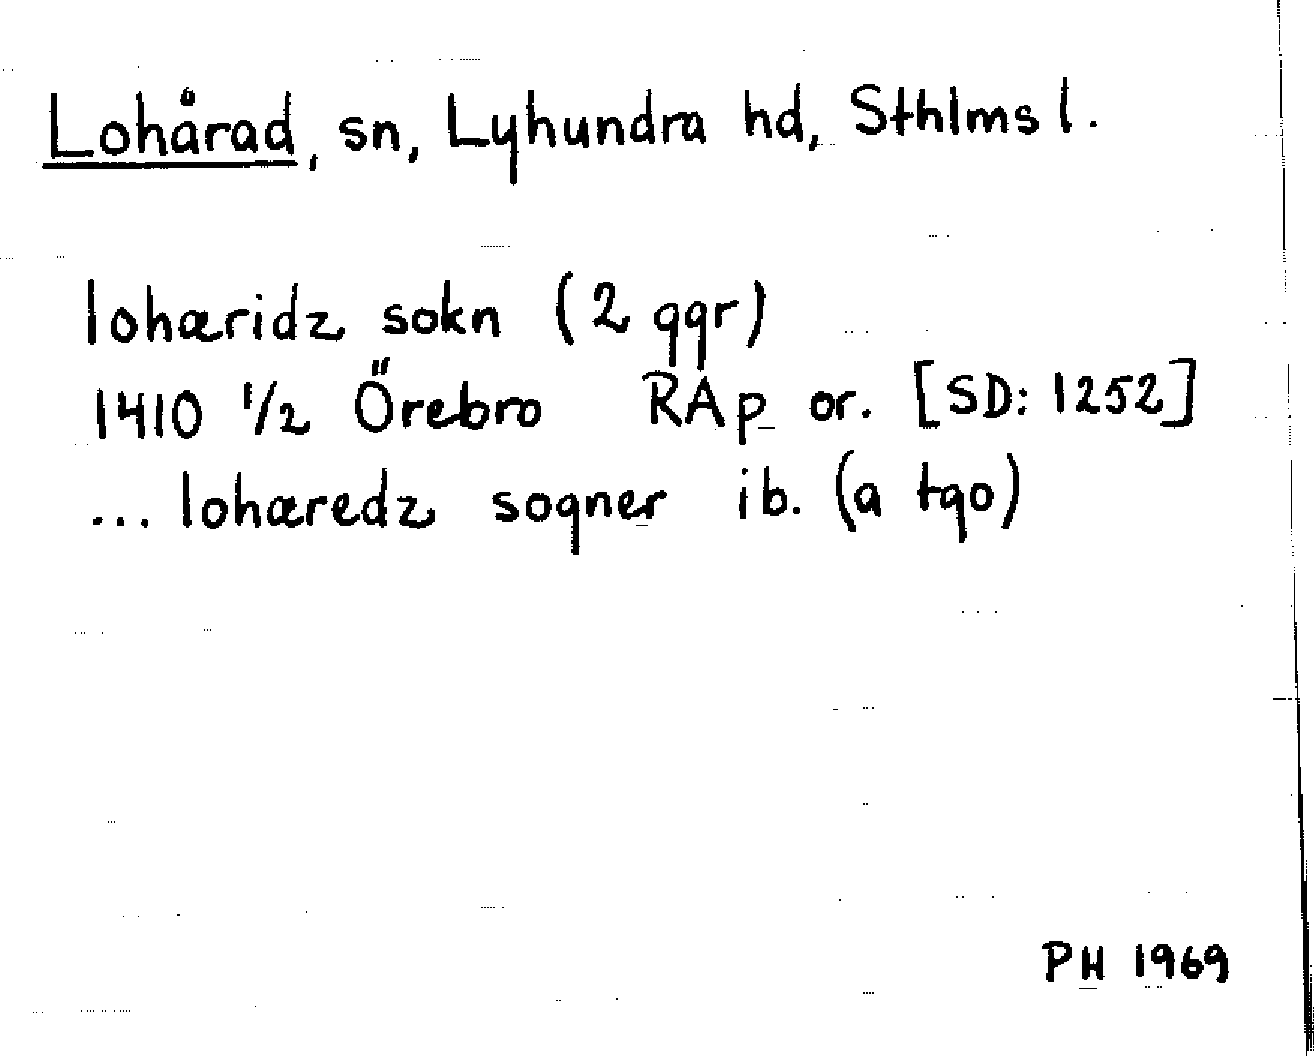 Lohårad, sn, Lyhundra hd, Sthlms l.
lohæridz sokn (2 ggr)
1410 1/2 Örebro RAp or. [SD: 1252]
... lohæredz sogner ib. (a tgo)
PH 1969